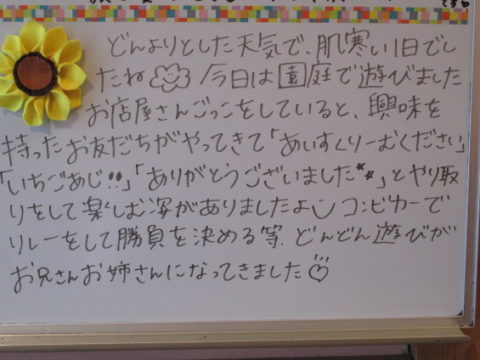 どんよりとした天気で、肌寒い1日でし
たね 今日は園庭で遊びました
お店屋さんごっこをしていると、興味を
持ったお友だちがやってきて「あいすくりーむください」
「いちごあじ!!」「ありがとうございました**」とやり取
りをして楽しむ姿がありましたよ コンビカーで
リレーをして勝負を決める等、どんどん遊びが
お兄さんお姉さんになってきました♡